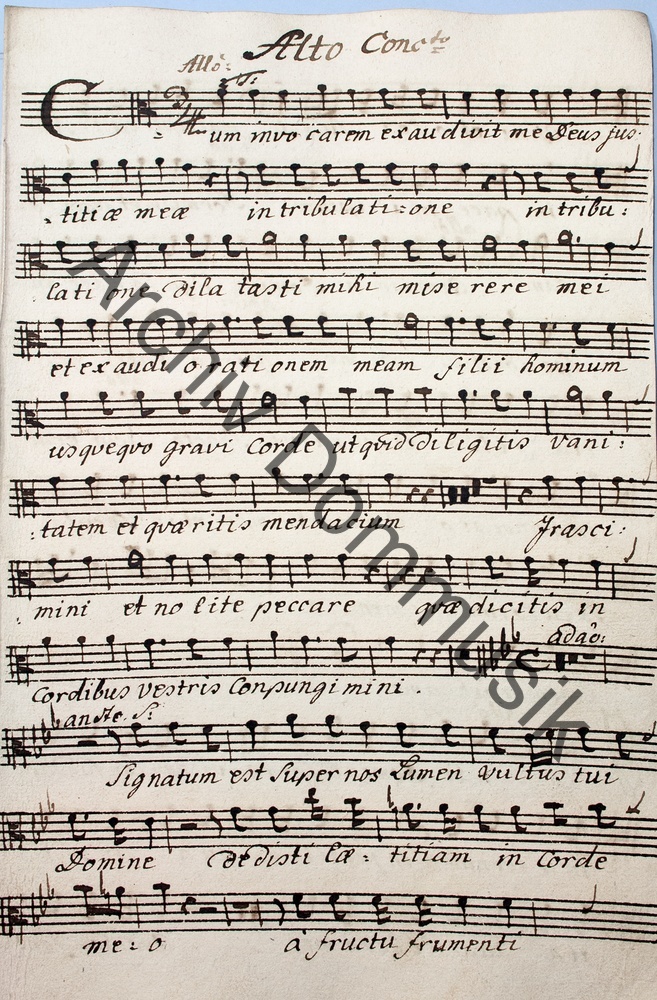 Alto Conc.to
Allo: S:
Cum invocarem exaudivit me Deus jus:
titiæ meæ in tribulati:one in tribu:
lati one dila tasti mihi mise rere mei
et exaudi orationem meam filii hominum
usquequo gravi Corde ut quid diligitis vani:
:tatem et quæritis mendacium Jrasci:
mini et nolite peccare quæ dicitis in
adaõ:
Cordibus vestris Conpungimini.
anste. S:
Signatum est super nos Lumen vultus tui
Domine dedisti læ: titiam in Corde
me:o à fructu frumenti
Archiv Dommusik